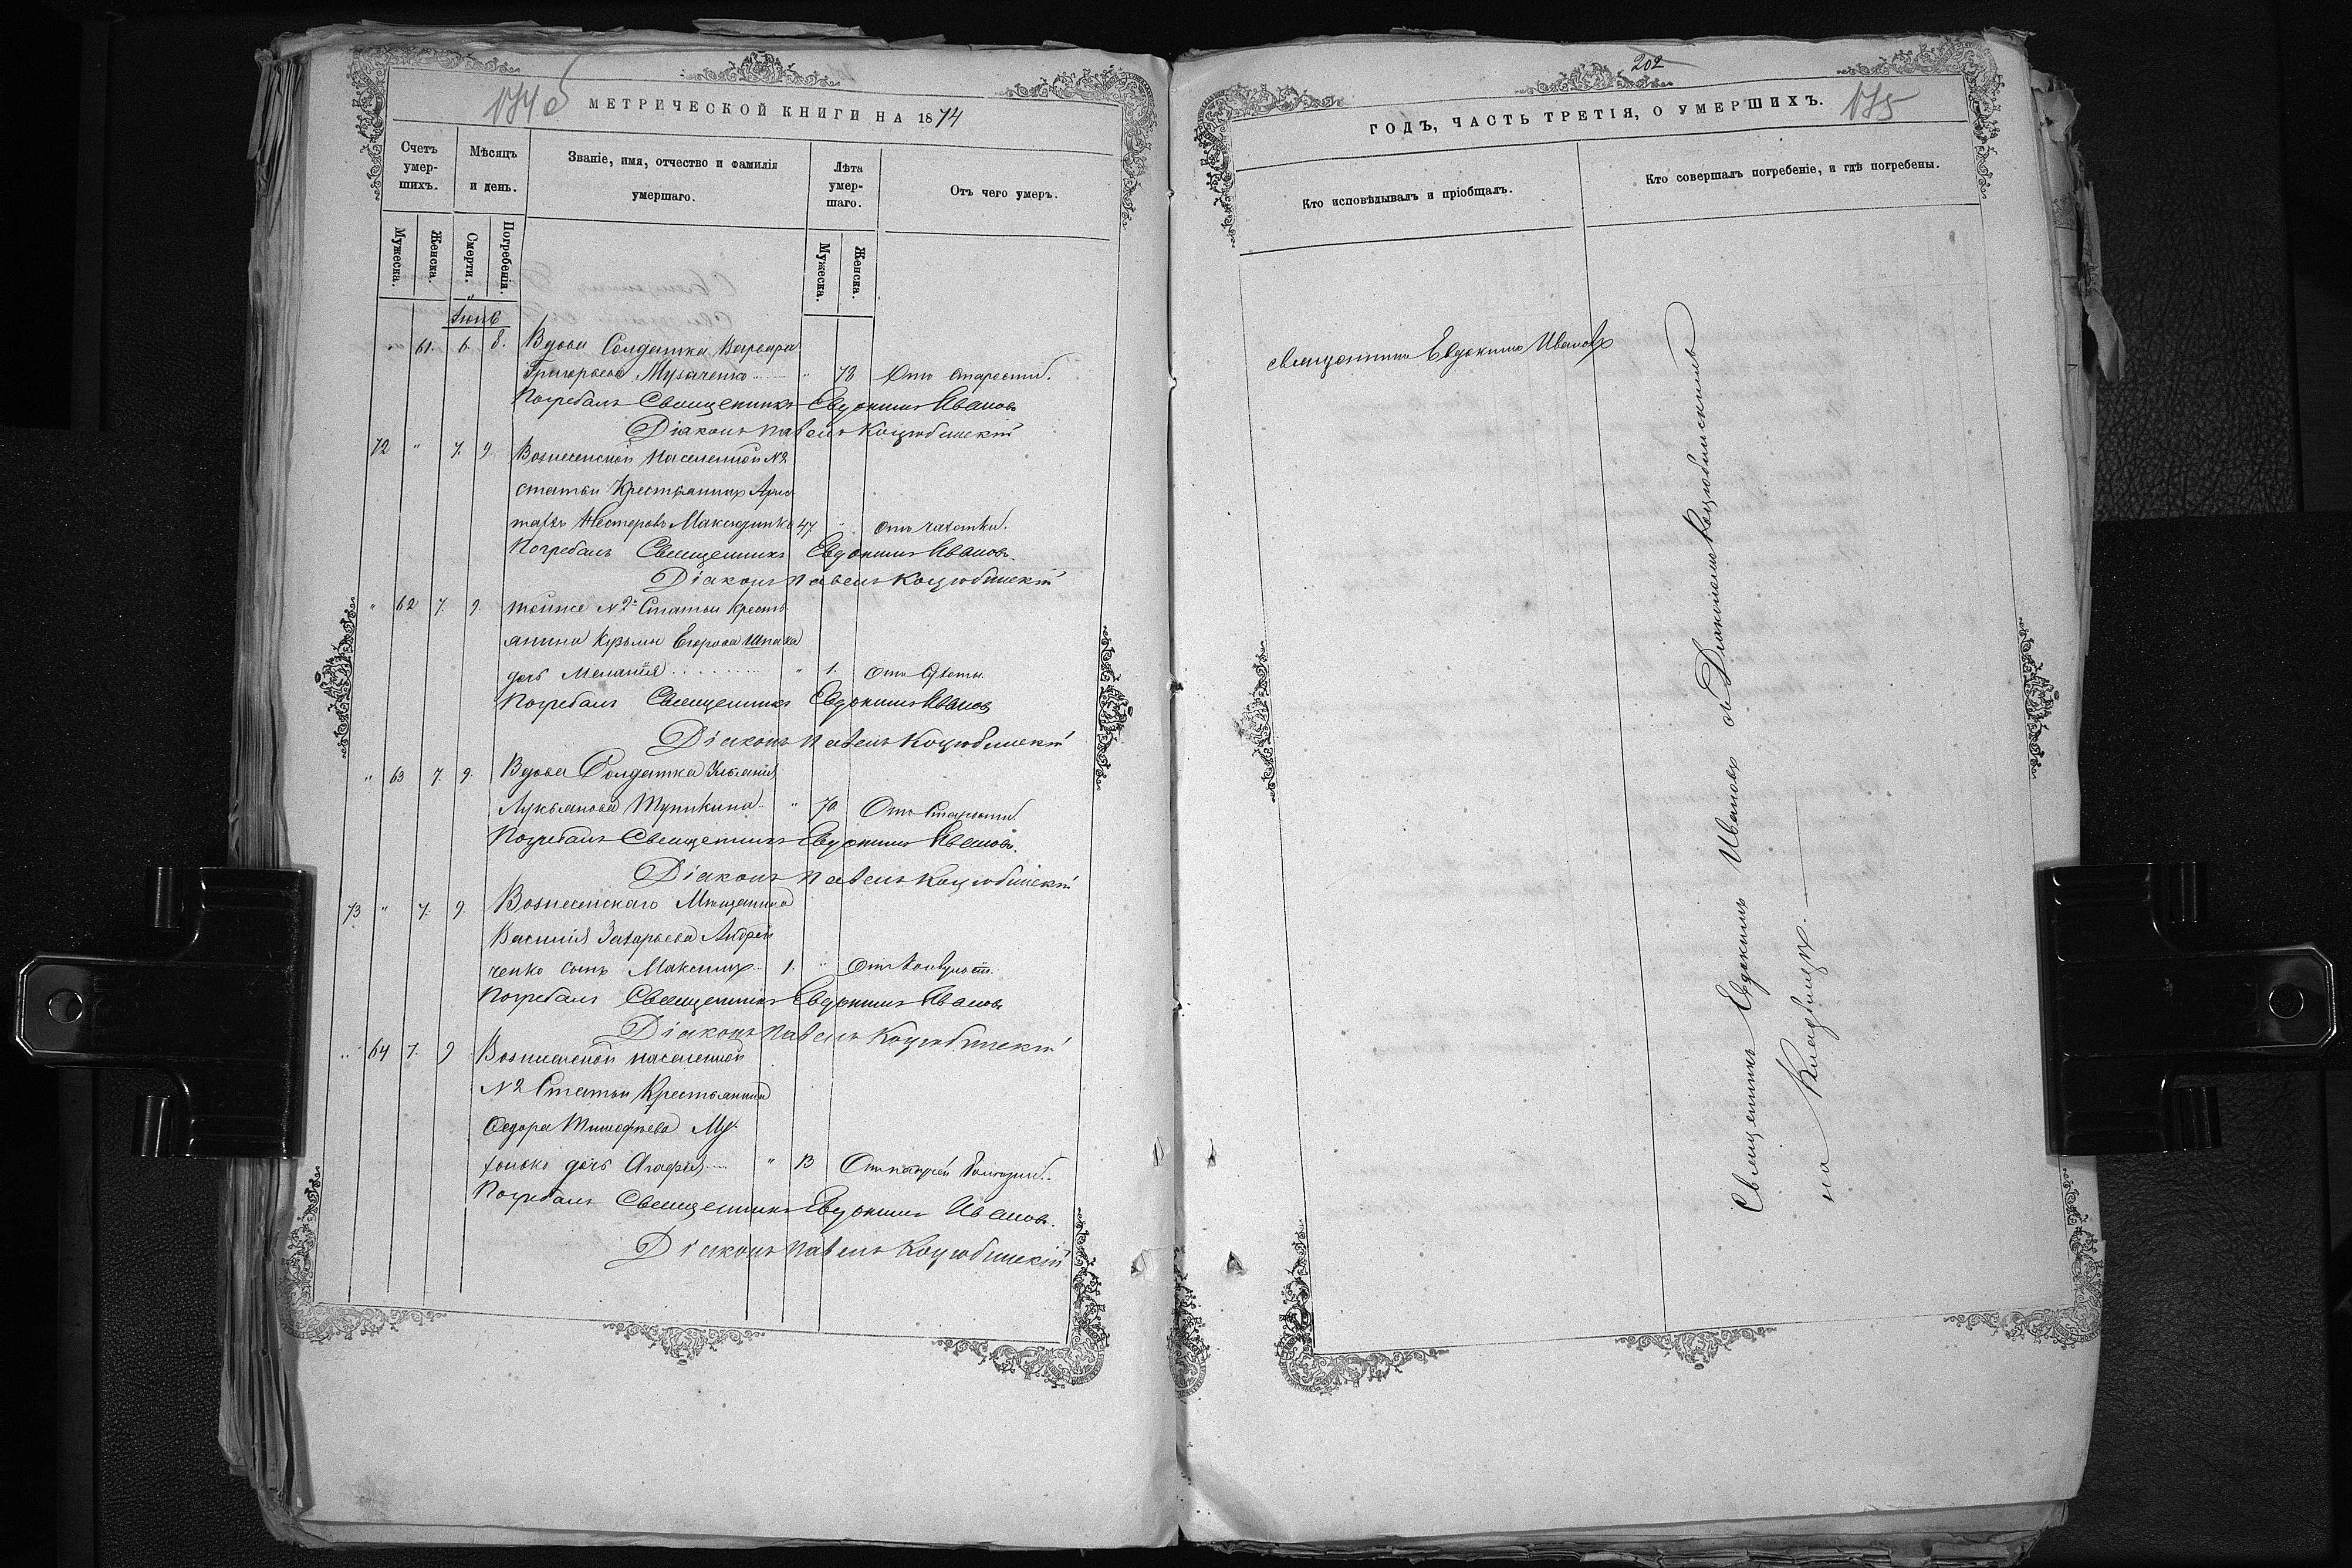 МЕТРИЧЕСКОЙ КНИГИ НА 1874
Счетъ умер-шихъ.
Мѣсяцъ и день.
Званіе, имя, отчество и фамилія умершаго.
Лѣта умер-шаго.
Отъ чего умеръ.
Мужеска.
Женска.
Смерти.
Погребенія.
Мужеска.
Женска.
Іюнь
" 61. 6. 8. Вдова Солдатка Варвара
Григорьева " 78 Отъ старости.
Погребалъ Священникъ Евдокимъ Ивановъ
Діаконъ Павелъ Коцюбинскій
72 " 7. 9. Вознесенской населенной №2
статьи Крестьянинъ
Нестеровъ 47 " отъ чахотки.
Погребалъ Священникъ Евдокимъ Ивановъ.
Діаконъ Павелъ Коцюбинскій
" 62 7. 9. тойже №2й Статьи Кресть
янина Кузьмы Егорова Шпака
дочь Меланія " 1. отъ
Погребалъ Священникъ Евдокимъ Ивановъ
Діаконъ Павелъ Коцюбинскій
" 63 7. 9. Вдова Солдатка
Лукьянова Тупикина " 70 Отъ Старости.
Погребалъ Священникъ Евдокимъ Ивановъ.
Діаконъ Павелъ Коцюбинскій
73 " 7. 9. Вознесенскаго Мѣщанина
Василія Захарьева Андрей
ченко сынъ Максимъ 1. " Отъ
Погребалъ Священникъ Евдокимъ Ивановъ
Діаконъ Павелъ Коцюбинскій
" 64 7. 9 Вознесенской населенной
№2 Статьи Крестьянина
Ѳедора Тимофѣева
дочь Агафія " 13 От
Погребалъ Священникъ Евдокимъ Ивановъ.
Діаконъ Павелъ Коцюбинскій
202
ГОДЪ, ЧАСТЬ ТРЕТІЯ, О УМЕРШИХЪ. 175
Кто исповѣдывалъ и пріобщалъ.
Кто совершалъ погребеніе, и гдѣ погребены.
священникъ Евдокимъ Ивановъ
Священникъ Евдокимъ Ивановъ съ Діакономъ Коцюбинскимъ
на Кладбищѣ.